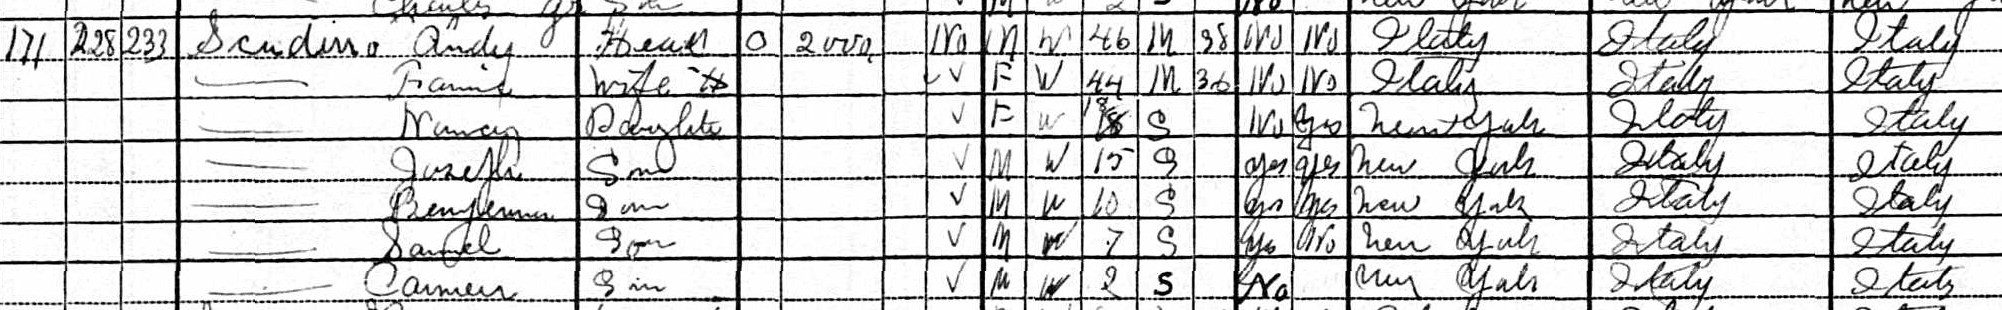 171 228 233 Scudirro Andy Head O 2000 No M W 46 M 38 No No Italy Italy Italy
Wife H F W 44 M 36 No No Italy Italy Italy
Nancy Daughter F W 18 S No Yes New York Italy Italy
Joseph Son M W 15 S yes yes New York Italy Italy
Son M W 10 S yes yes New York Italy Italy
Samuel Son M W 7 S yes No New York Italy Italy
Carmen Son M W 2 S No New York Italy Italy